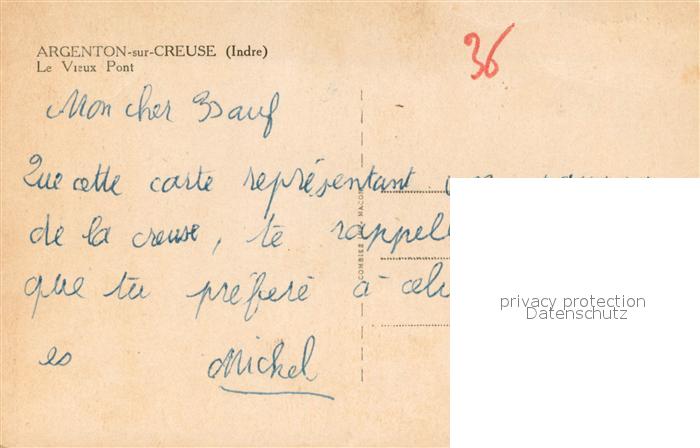 ARGENTON-sur-CREUSE (Indre)
Le Vieux Pont
36
Mon cher
Que cette carte représentant
de la creuse, te rappel
que tu préferé à celu
es Michel
COMBIER MACON
privacy protection
Datenschutz